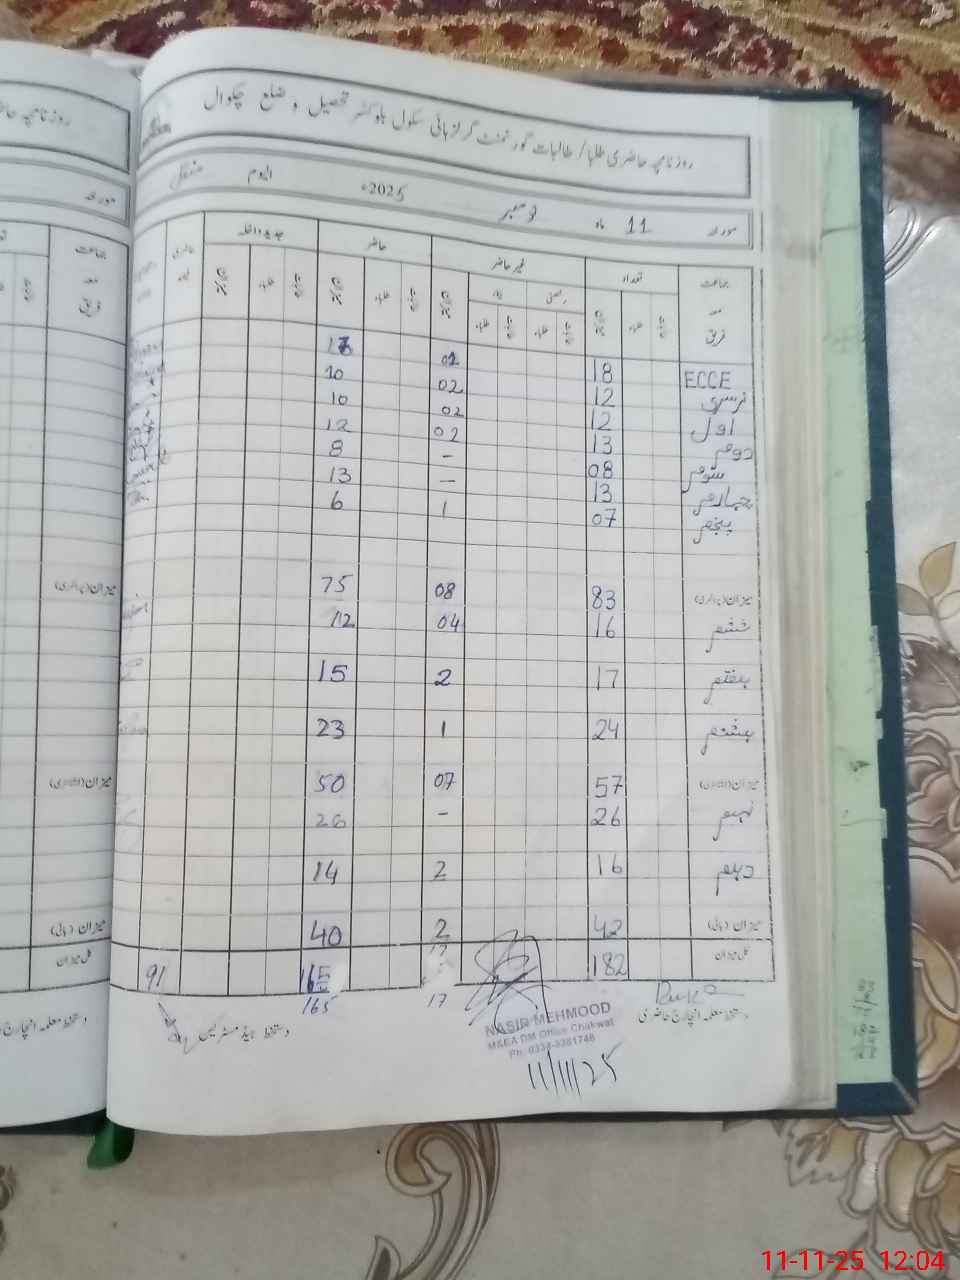 روزنامچہ حاضری طلبا/ طالبات گورنمنٹ گرلز ہائی سکول بلوکسر تحصیل و ضلع چکوال
مورخہ 11 ماہ نومبر 2025ء الیوم منگل
جماعت مع فریق تعداد غیر حاضر حاضر جدید داخلہ
رخصتی
میزان طلبہ
ECCE 18 02
نرسری 12 02 10
اول 12 02 10
دوم 13 02 12
سوم 08 - 8
چہارم 13 - 13
پنجم 07 1 6
میزان (پرائمری) 83 08 75
ششم 16 04 12
ہفتم 17 2 15
ہشتم 24 1 23
میزان 57 07 50
نہم 26 - 26
دہم 16 2 14
میزان (ہائی) 42 2 40
کل میزان 182 17 165 91
17 165
دستخط معلمہ انچارج حاضری
دستخط ہیڈ مسٹریس
NASIR MEHMOOD
M&EA DM Office Chakwal
Ph: 0334-3381748
11/11/25
روزنامچہ
مورخہ
جماعت مع فریق
میزان (پرائمری)
میزان
میزان (ہائی)
کل میزان
دستخط معلمہ انچارج
11-11-25 12:04